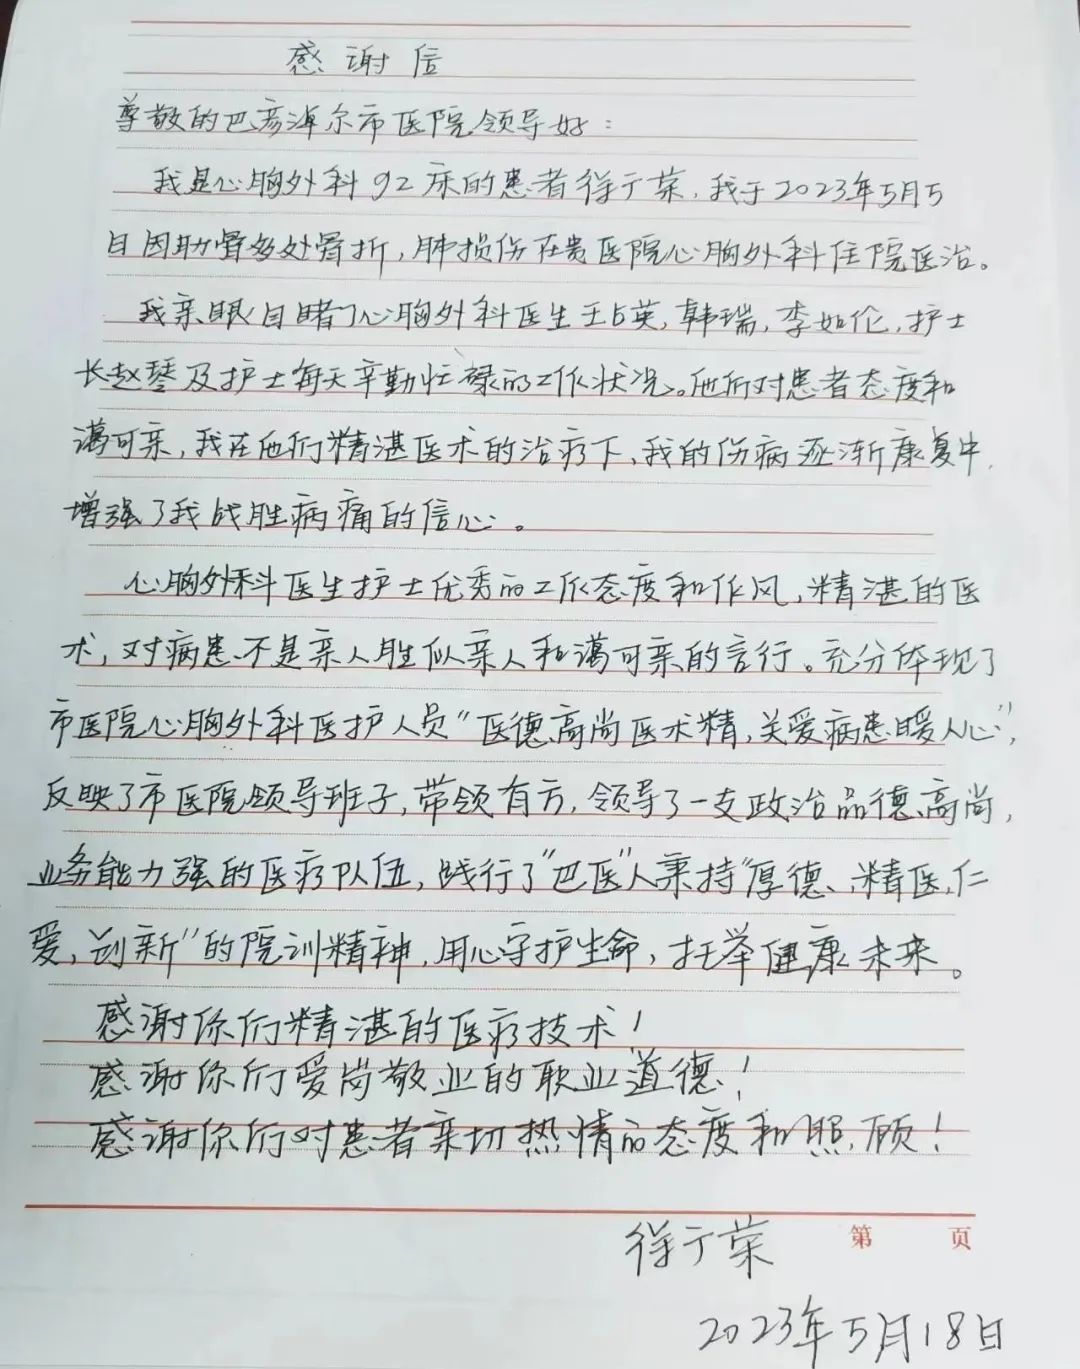 感谢信
尊敬的巴彦淖尔市医院领导好：
我是心胸外科92床的患者徐于荣，我于2023年5月5
日因肋骨多处骨折，肺损伤在贵医院心胸外科住院医治。
我亲眼目睹了心胸外科医生王占英，韩瑞，李如伦，护士
长赵琴及护士每天辛勤忙碌的工作状况。他们对患者态度和
蔼可亲，我在他们精湛医术的治疗下，我的伤病逐渐康复中，
增强了我战胜病痛的信心。
心胸外科医生护士优秀的工作态度和作风，精湛的医
术，对病患不是亲人胜似亲人和蔼可亲的言行。充分体现了
市医院心胸外科医护人员“医德高尚医术精，关爱病患暖人心”，
反映了市医院领导班子，带领有方，领导了一支政治品德高尚，
业务能力强的医疗队伍，践行了“巴医”人秉持“厚德、精医，仁
爱，创新”的院训精神，用心守护生命，托举健康未来。
感谢你们精湛的医疗技术！
感谢你们爱岗敬业的职业道德！
感谢你们对患者亲切热情的态度和照顾！
徐于荣
第 页
2023年5月18日